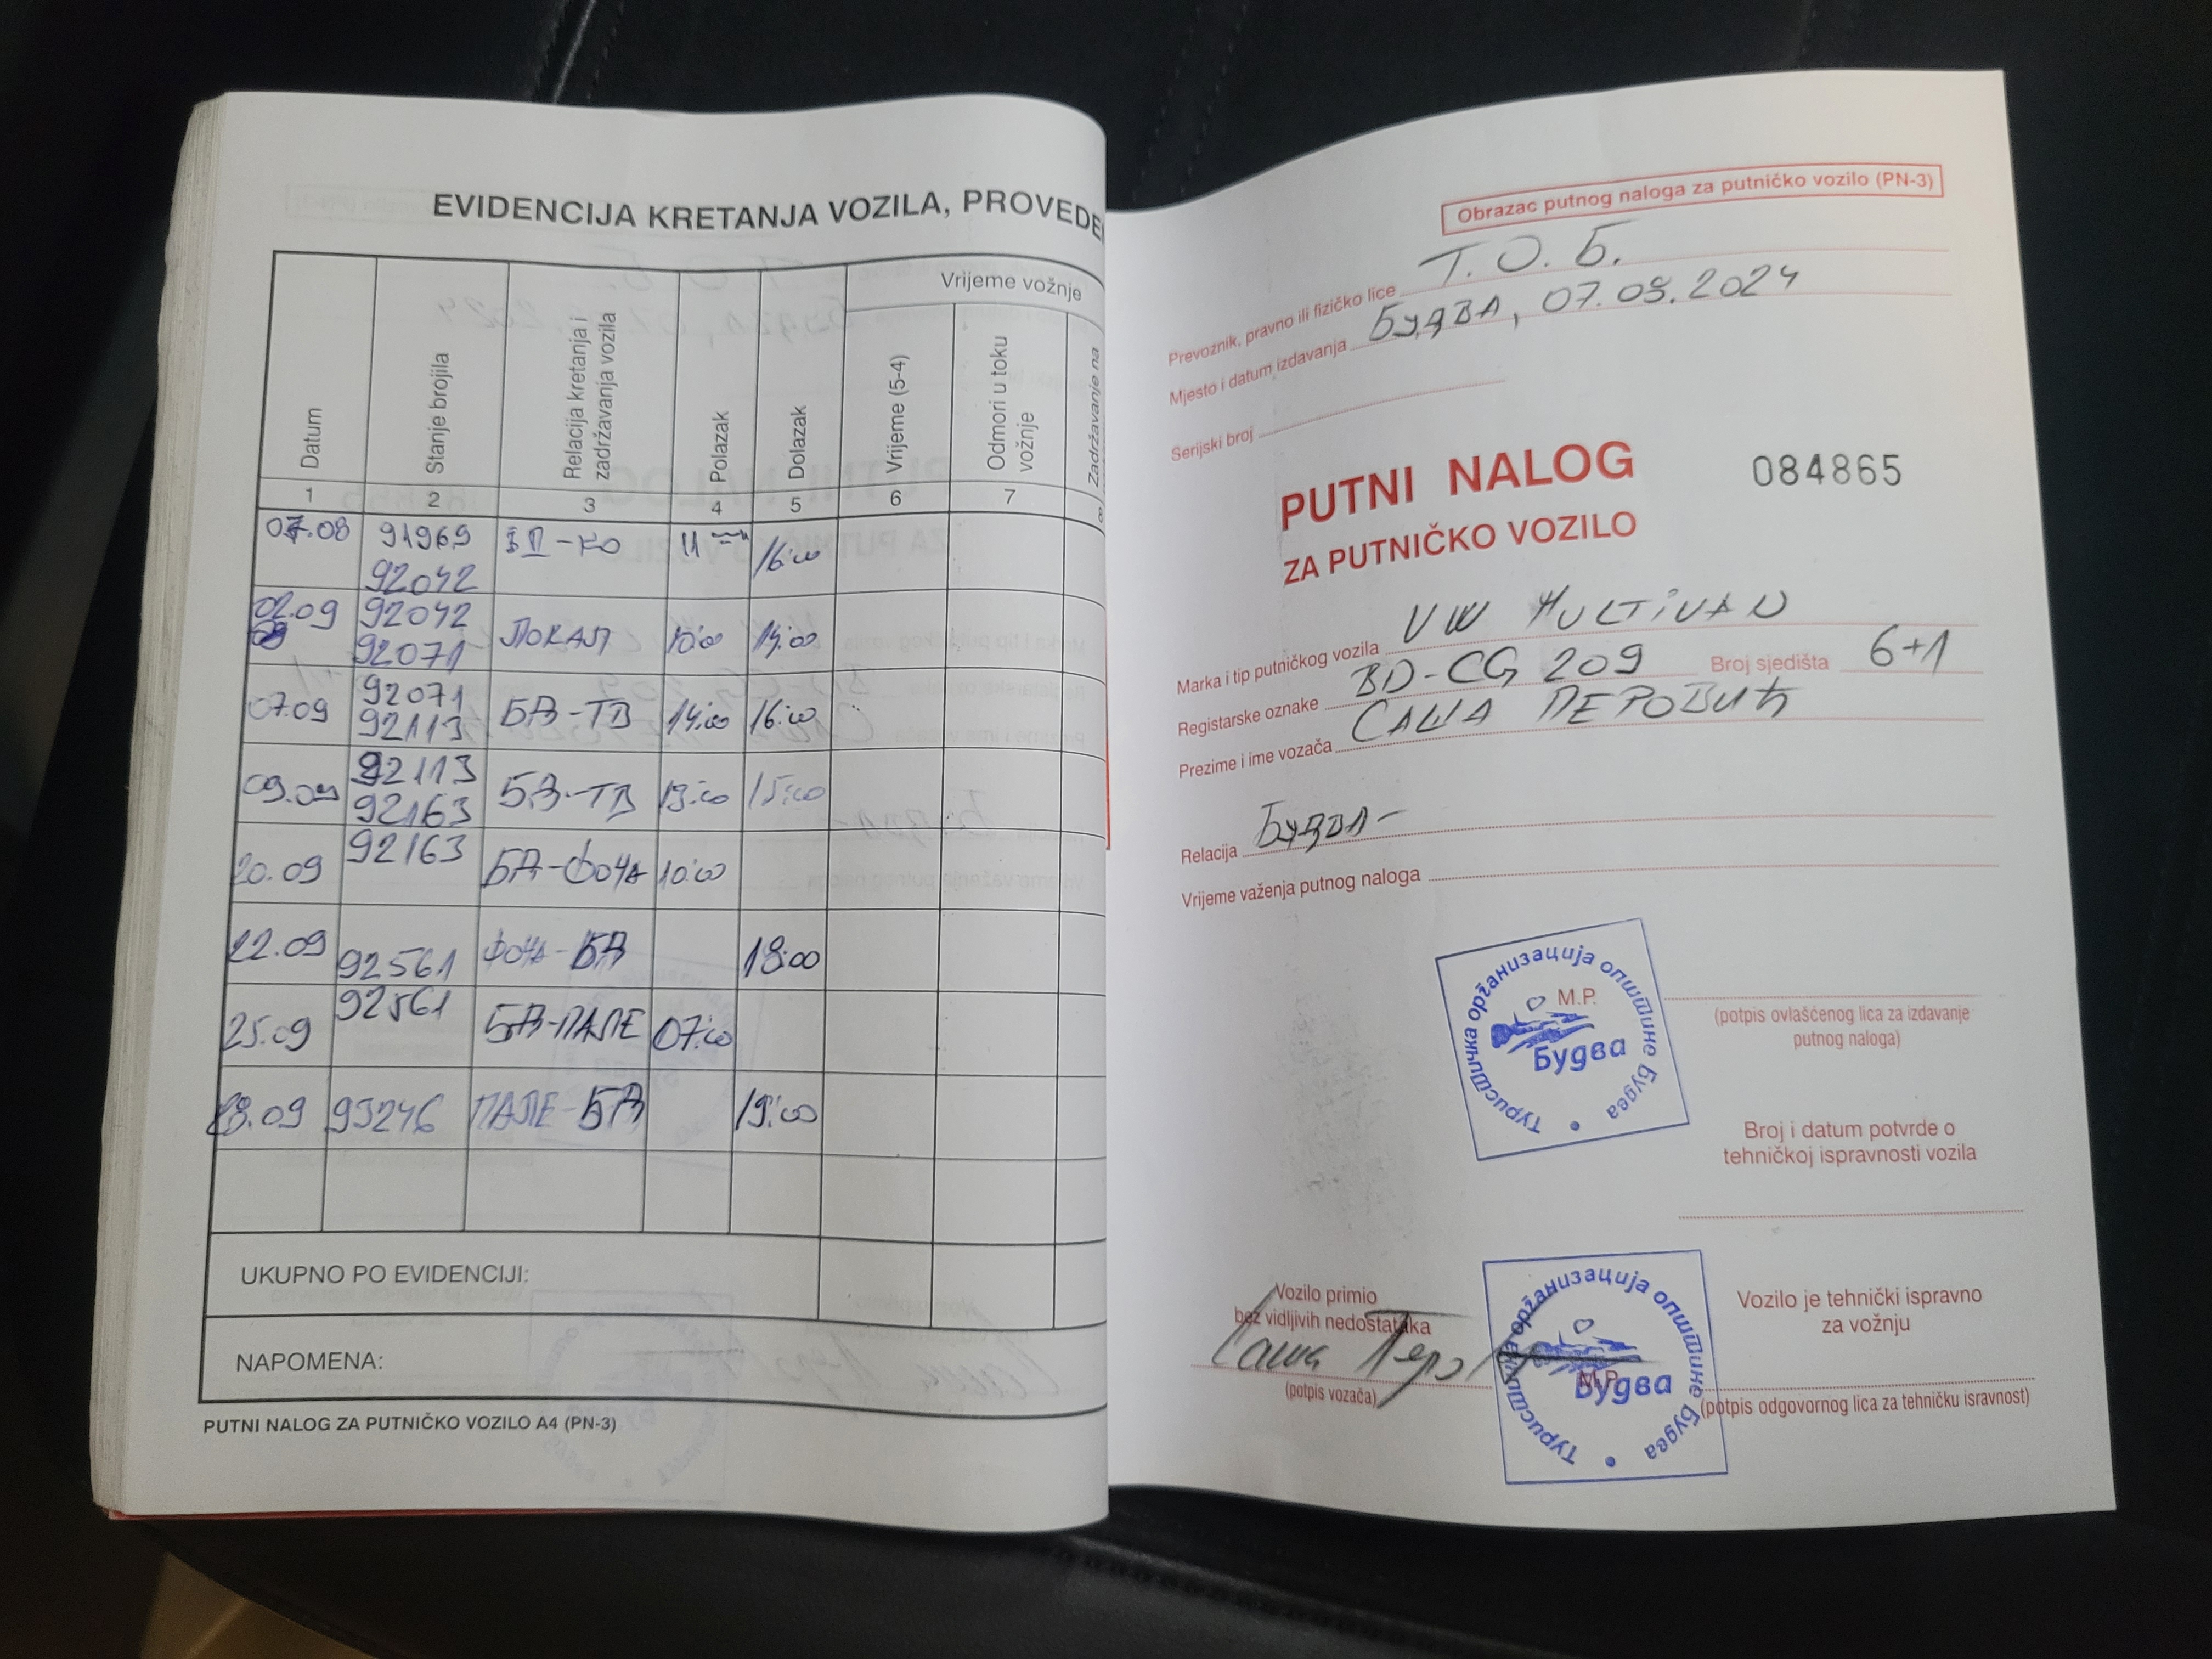 EVIDENCIJA KRETANJA VOZILA, PROVEDE
Vrijeme vožnje
Datum
Stanje brojila
Relacija kretanja i zadržavanja vozila
Polazak
Dolazak
Vrijeme (5-4)
Odmori u toku vožnje
Zadržavanje na
1 2 3 4 5 6 7 8
07.08 91969 92042 БД-КО 11 16:00
02.09 92042 92071 ЛОКАЛ 10:00 14:00
07.09 92071 92113 БД-ТВ 14:00 16:00
09.09 92113 92163 БД-ТВ 13:00 15:00
20.09 92163 БД-ФОЧА 10:00
22.09 92561 ФОЧА-БД 18:00
25.09 92561 БД-ПАЛЕ 07:00
28.09 93246 ПАЛЕ-БД 19:00
UKUPNO PO EVIDENCIJI:
NAPOMENA:
PUTNI NALOG ZA PUTNIČKO VOZILO A4 (PN-3)
Obrazac putnog naloga za putničko vozilo (PN-3)
Prevoznik, pravno ili fizičko lice Т.О.Б.
Mjesto i datum izdavanja БУДВА, 07.09.2024
Serijski broj
PUTNI NALOG 084865
ZA PUTNIČKO VOZILO
Marka i tip putničkog vozila VW MULTIVAN
Registarske oznake BD-CG 209 Broj sjedišta 6+1
Prezime i ime vozača САША ПЕРОВИЋ
Relacija БУДВА-
Vrijeme važenja putnog naloga
Туристичка организација општине Будва
М.Р.
Будва
(potpis ovlašćenog lica za izdavanje
putnog naloga)
Broj i datum potvrde o
tehničkoj ispravnosti vozila
Vozilo primio
bez vidljivih nedostataka
Саша
(potpis vozača)
Туристичка организација општине Будва
М.Р.
Будва
Vozilo je tehnički ispravno
za vožnju
(potpis odgovornog lica za tehničku isravnost)